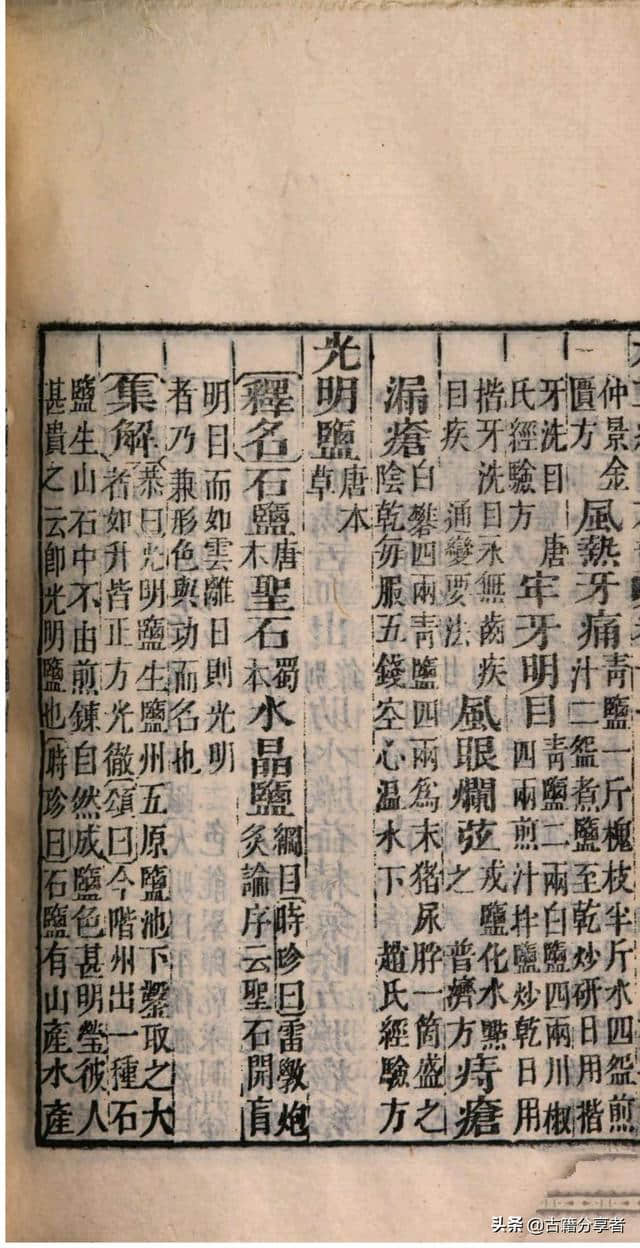 仲景金匱方 風熱牙痛 青鹽一斤槐枝半斤水四盌煎汁二盌煮鹽至乾炒研日用揩
牙洗目 唐氏經驗方 牢牙明目 青鹽二兩白鹽四兩川椒四兩煎汁拌鹽炒乾日用
揩牙洗目永無齒疾目疾 通變要法 風眼爛弦 戎鹽化水點之 普濟方 痔瘡
漏瘡 白礬四兩青鹽四兩爲末猪尿脬一箇盛之陰乾每服五錢空心温水下 趙氏經驗方
光明鹽 唐本草
釋名 石鹽 唐本 聖石 蜀本 水晶鹽 綱目 時珍曰雷斆炮炙論序云聖石開盲
明目而如雲離日則光明者乃兼形色與功而名也
集解 恭曰光明鹽生鹽州五原鹽池下鑿取之大者如升皆正方光徹頌曰今階州出一種石
鹽生山石中不由煎鍊自然成鹽色甚明瑩彼人甚貴之云卽光明鹽也時珍曰石鹽有山產水產
头条 @古籍分享者